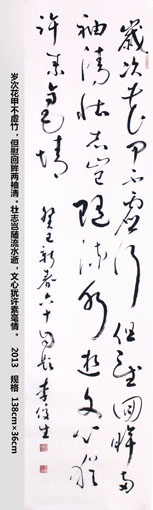 歲次花甲不虛行但慰回眸兩
袖清壯志豈隨流水逝文心猶
許素毫情
癸巳新春六十同龄李俊生
岁次花甲不虚竹，但慰回眸两袖清。壮志岂随流水逝，文心犹许素毫情。 2013 规格 138cm×36cm